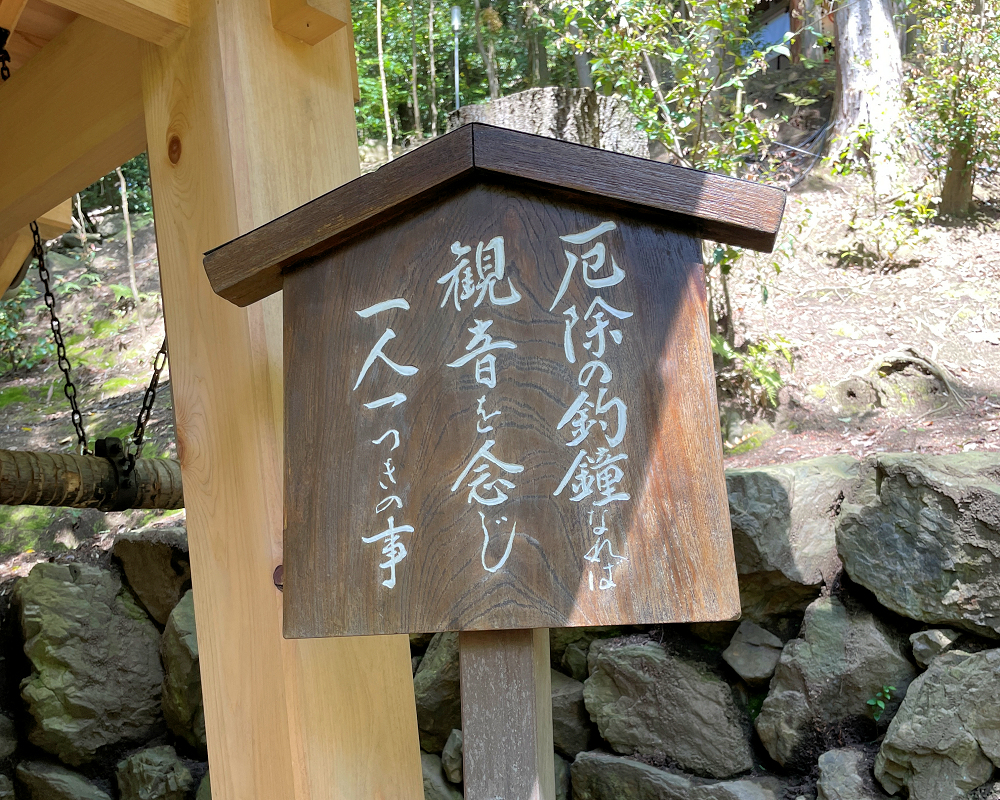 厄除の釣鐘なれは
観音を念じ
一人一つきの事